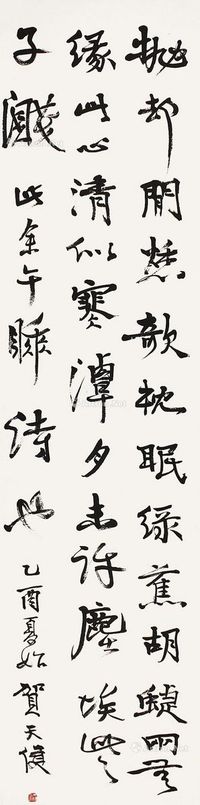 抛却閒愁欹枕眠綠蕉胡蝶兩無
緣此心清似寒潭月未許塵埃些
子濺 此余午睡詩也 乙酉夏始 賀天健